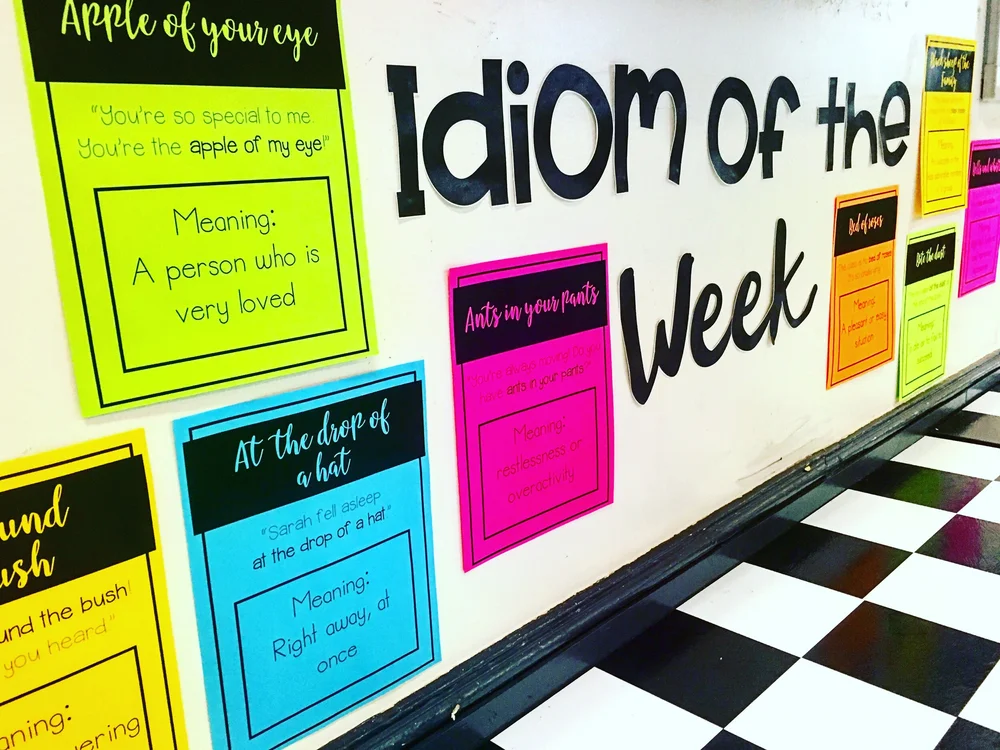 Apple of your eye
"You're so special to me.
You're the apple of my eye!"
Meaning:
A person who is
very loved
Idiom of the
Week
At the drop of
a hat
"Sarah fell asleep
at the drop of a hat."
Meaning:
Right away, at
once
Ants in your pants
"You're always moving! Do you
have ants in your pants?"
Meaning:
restlessness or
overactivity
und
ush
und the bush!
you heard."
aning:
ering
Bed of roses
Meaning:
A pleasant or easy
situation
Bite the dust
Meaning:
Black sheep of the
family
Meaning: